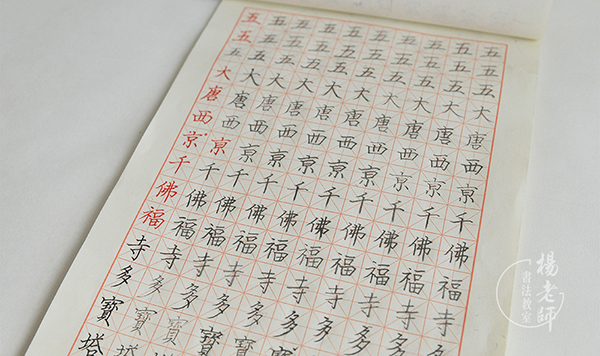 五五五五五五五五五
五五五五五五五五五
五五五五五五五五五
大大大大大大大大大
唐唐唐唐唐唐唐唐唐
西西西西西西西西西
京京京京京京京京京
千千千千千千千千千
佛佛佛佛佛佛佛佛佛
福福福福福福福福福
寺寺寺寺寺寺寺寺寺
多多多多多多多多多
寶寶寶寶寶
塔塔
楊老師
書法教室